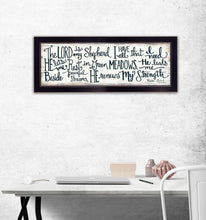 The LORD is my Shepherd I HAVE all that I need
HE lets me Rest in Green MEADOWS He leads me
Beside Peaceful Streams. HE renews My Strength